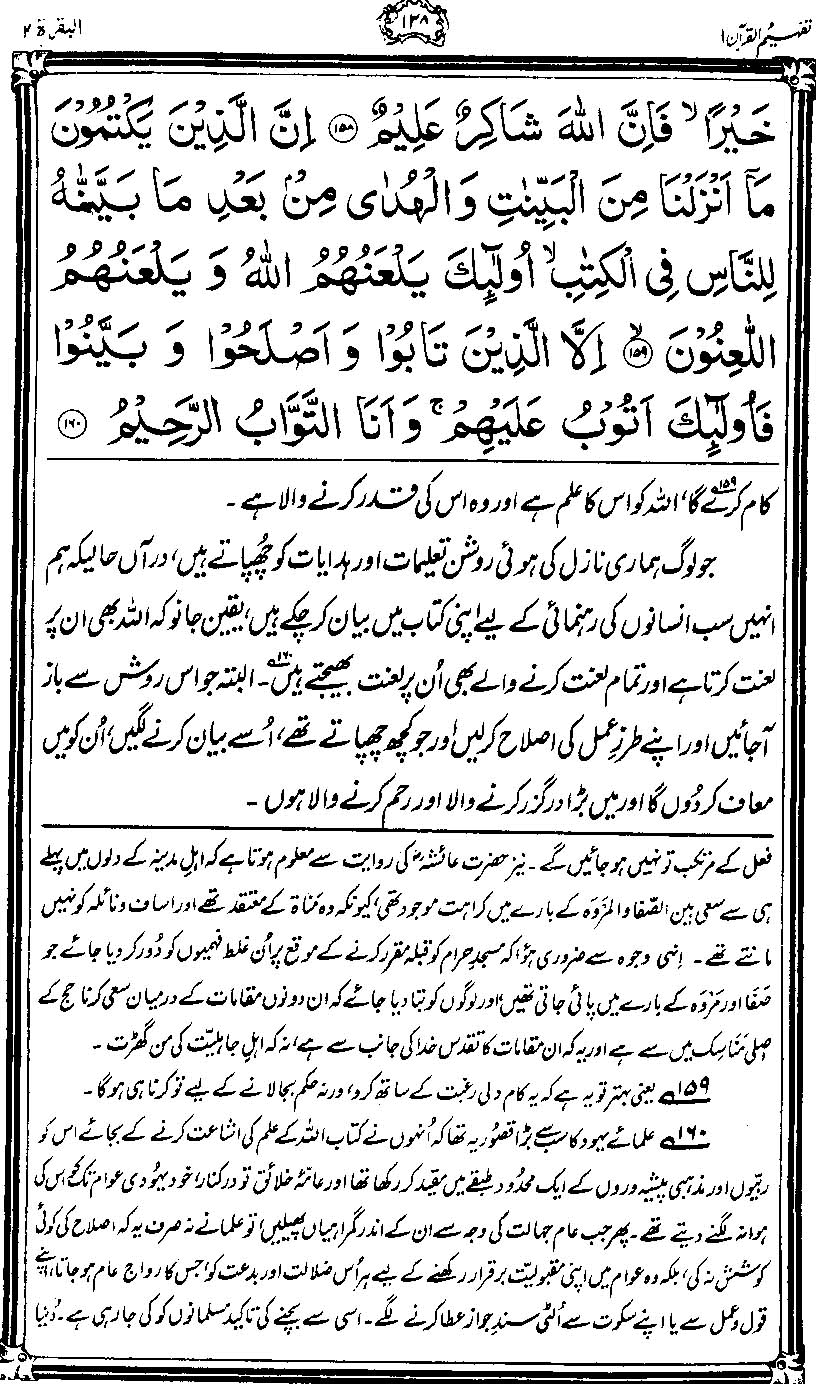 تفہیم القرآن ۱
۱۲۸
البقرۃ ۲
خَيْرًا ۙ فَاِنَّ اللّٰهَ شَاكِرٌ عَلِيْمٌ ﴿۱۵۸﴾ اِنَّ الَّذِيْنَ يَكْتُمُوْنَ
مَآ اَنْزَلْنَا مِنَ الْبَيِّنٰتِ وَالْهُدٰى مِنْۢ بَعْدِ مَا بَيَّنّٰهُ
لِلنَّاسِ فِى الْكِتٰبِ ۙ اُولٰٓئِكَ يَلْعَنُهُمُ اللّٰهُ وَ يَلْعَنُهُمُ
اللّٰعِنُوْنَ ۙ ﴿۱۵۹﴾ اِلَّا الَّذِيْنَ تَابُوْا وَاَصْلَحُوْا وَ بَيَّنُوْا
فَاُولٰٓئِكَ اَتُوْبُ عَلَيْهِمْ ۚ وَاَنَا التَّوَّابُ الرَّحِيْمُ ﴿۱۶۰﴾
کام کرے گا۱۵۹، اللہ کو اس کا علم ہے اور وہ اس کی قدر کرنے والا ہے۔
جو لوگ ہماری نازل کی ہوئی روشن تعلیمات اور ہدایات کو چُھپاتے ہیں، درآں حالیکہ ہم
انہیں سب انسانوں کی رہنمائی کے لیے اپنی کتاب میں بیان کر چکے ہیں، یقین جانو کہ اللہ بھی ان پر
لعنت کرتا ہے اور تمام لعنت کرنے والے بھی اُن پر لعنت بھیجتے ہیں۱۶۰۔ البتہ جو اس روش سے باز
آجائیں اور اپنے طرزِ عمل کی اصلاح کرلیں اور جو کچھ چھپاتے تھے، اُسے بیان کرنے لگیں، اُن کو میں
معاف کر دُوں گا اور میں بڑا درگزر کرنے والا اور رحم کرنے والا ہوں۔
فعل کے مرتکب تو نہیں ہو جائیں گے۔ نیز حضرت عائشہؓ کی روایت سے معلوم ہوتا ہے کہ اہلِ مدینہ کے دلوں میں پہلے
ہی سے سعی بین الصّفا والمَروَہ کے بارے میں کراہت موجود تھی، کیونکہ وہ مَناۃ کے معتقد تھے اور اساف و نائلہ کو نہیں
مانتے تھے۔ اِنہی وجوہ سے ضروری ہوا کہ مسجدِ حرام کو قبلہ مقرر کرنے کے موقع پر اُن غلط فہمیوں کو دُور کر دیا جائے جو
صَفا اور مَروَہ کے بارے میں پائی جاتی تھیں، اور لوگوں کو بتا دیا جائے کہ ان دونوں مقامات کے درمیان سعی کرنا حج کے
اصلی مَناسِک میں سے ہے اور یہ کہ ان مقامات کا تقدس خدا کی جانب سے ہے، نہ کہ اہلِ جاہلیّت کی من گھڑت۔
۱۵۹؎ یعنی بہتر تو یہ ہے کہ یہ کام دلی رغبت کے ساتھ کرو، ورنہ حکم بجا لانے کے لیے تو کرنا ہی ہوگا۔
۱۶۰؎ علمائے یہود کا سب سے بڑا قصُور یہ تھا کہ اُنہوں نے کتاب اللہ کے علم کی اشاعت کرنے کے بجائے اس کو
ربّیوں اور مذہبی پیشہ وروں کے ایک محدُود طبقے میں مقید کر رکھا تھا اور عامۂ خلائق تو درکنار، خود یہُودی عوام تک کو اس کی
ہوا نہ لگنے دیتے تھے۔ پھر جب عام جہالت کی وجہ سے ان کے اندر گمراہیاں پھیلیں، تو علما نے نہ صرف یہ کہ اصلاح کی کوئی
کوشش نہ کی، بلکہ وہ عوام میں اپنی مقبولیّت برقرار رکھنے کے لیے ہر اُس ضلالت اور بدعت کو، جس کا رواج عام ہو جاتا، اپنے
قول و عمل سے یا اپنے سکوت سے اُلٹی سندِ جواز عطا کرنے لگے۔ اسی سے بچنے کی تاکید مسلمانوں کو کی جا رہی ہے۔ دُنیا